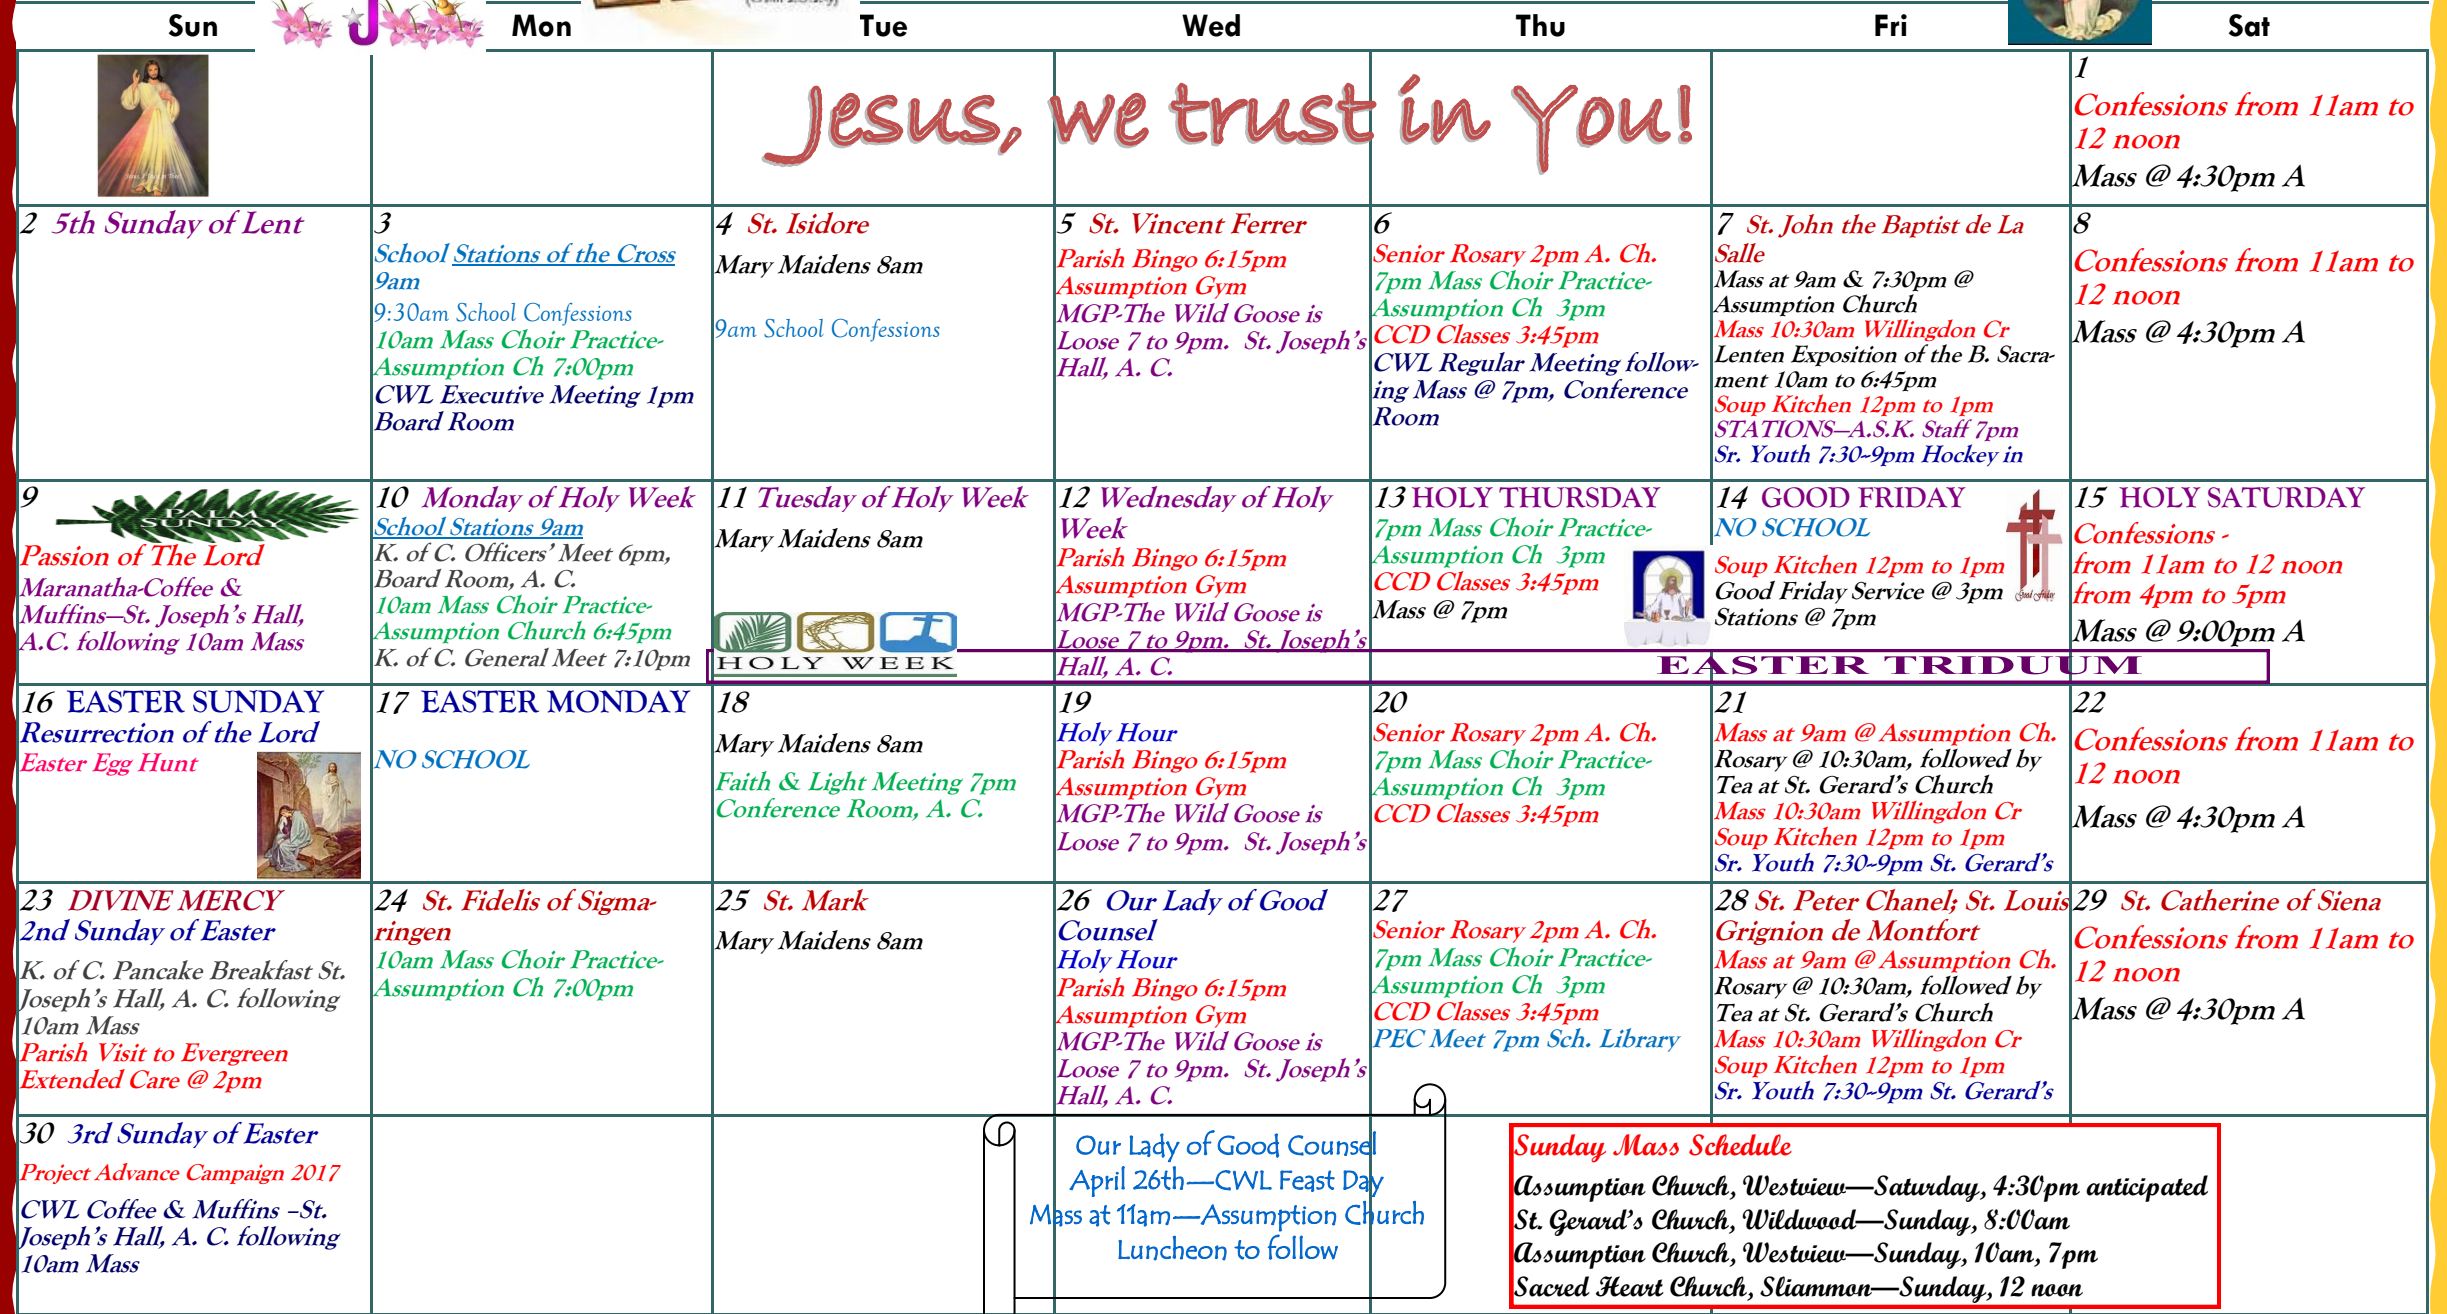 Sun Mon Tue Wed Thu Fri Sat
Jesus, we trust in You!
1
Confessions from 11am to
12 noon
Mass @ 4:30pm A
2 5th Sunday of Lent
3
School Stations of the Cross
9am
9:30am School Confessions
10am Mass Choir Practice-
Assumption Ch 7:00pm
CWL Executive Meeting 1pm
Board Room
4 St. Isidore
Mary Maidens 8am
9am School Confessions
5 St. Vincent Ferrer
Parish Bingo 6:15pm
Assumption Gym
MGP-The Wild Goose is
Loose 7 to 9pm. St. Joseph's
Hall, A. C.
6
Senior Rosary 2pm A. Ch.
7pm Mass Choir Practice-
Assumption Ch 3pm
CCD Classes 3:45pm
CWL Regular Meeting follow-
ing Mass @ 7pm, Conference
Room
7 St. John the Baptist de La
Salle
Mass at 9am & 7:30pm @
Assumption Church
Mass 10:30am Willingdon Cr
Lenten Exposition of the B. Sacra-
ment 10am to 6:45pm
Soup Kitchen 12pm to 1pm
STATIONS—A.S.K. Staff 7pm
Sr. Youth 7:30~9pm Hockey in
8
Confessions from 11am to
12 noon
Mass @ 4:30pm A
9
PALM
SUNDAY
Passion of The Lord
Maranatha-Coffee &
Muffins—St. Joseph's Hall,
A.C. following 10am Mass
10 Monday of Holy Week
School Stations 9am
K. of C. Officers' Meet 6pm,
Board Room, A. C.
10am Mass Choir Practice-
Assumption Church 6:45pm
K. of C. General Meet 7:10pm
11 Tuesday of Holy Week
Mary Maidens 8am
HOLY WEEK
12 Wednesday of Holy
Week
Parish Bingo 6:15pm
Assumption Gym
MGP-The Wild Goose is
Loose 7 to 9pm. St. Joseph's
Hall, A. C.
13 HOLY THURSDAY
7pm Mass Choir Practice-
Assumption Ch 3pm
CCD Classes 3:45pm
Mass @ 7pm
14 GOOD FRIDAY
NO SCHOOL
Soup Kitchen 12pm to 1pm
Good Friday Service @ 3pm
Stations @ 7pm
Good Friday
15 HOLY SATURDAY
Confessions -
from 11am to 12 noon
from 4pm to 5pm
Mass @ 9:00pm A
EASTER TRIDUUM
16 EASTER SUNDAY
Resurrection of the Lord
Easter Egg Hunt
17 EASTER MONDAY
NO SCHOOL
18
Mary Maidens 8am
Faith & Light Meeting 7pm
Conference Room, A. C.
19
Holy Hour
Parish Bingo 6:15pm
Assumption Gym
MGP-The Wild Goose is
Loose 7 to 9pm. St. Joseph's
20
Senior Rosary 2pm A. Ch.
7pm Mass Choir Practice-
Assumption Ch 3pm
CCD Classes 3:45pm
21
Mass at 9am @ Assumption Ch.
Rosary @ 10:30am, followed by
Tea at St. Gerard's Church
Mass 10:30am Willingdon Cr
Soup Kitchen 12pm to 1pm
Sr. Youth 7:30~9pm St. Gerard's
22
Confessions from 11am to
12 noon
Mass @ 4:30pm A
23 DIVINE MERCY
2nd Sunday of Easter
K. of C. Pancake Breakfast St.
Joseph's Hall, A. C. following
10am Mass
Parish Visit to Evergreen
Extended Care @ 2pm
24 St. Fidelis of Sigma-
ringen
10am Mass Choir Practice-
Assumption Ch 7:00pm
25 St. Mark
Mary Maidens 8am
26 Our Lady of Good
Counsel
Holy Hour
Parish Bingo 6:15pm
Assumption Gym
MGP-The Wild Goose is
Loose 7 to 9pm. St. Joseph's
Hall, A. C.
27
Senior Rosary 2pm A. Ch.
7pm Mass Choir Practice-
Assumption Ch 3pm
CCD Classes 3:45pm
PEC Meet 7pm Sch. Library
28 St. Peter Chanel; St. Louis
Grignion de Montfort
Mass at 9am @ Assumption Ch.
Rosary @ 10:30am, followed by
Tea at St. Gerard's Church
Mass 10:30am Willingdon Cr
Soup Kitchen 12pm to 1pm
Sr. Youth 7:30~9pm St. Gerard's
29 St. Catherine of Siena
Confessions from 11am to
12 noon
Mass @ 4:30pm A
30 3rd Sunday of Easter
Project Advance Campaign 2017
CWL Coffee & Muffins –St.
Joseph's Hall, A. C. following
10am Mass
Our Lady of Good Counsel
April 26th—CWL Feast Day
Mass at 11am—Assumption Church
Luncheon to follow
Sunday Mass Schedule
Assumption Church, Westview—Saturday, 4:30pm anticipated
St. Gerard's Church, Wildwood—Sunday, 8:00am
Assumption Church, Westview—Sunday, 10am, 7pm
Sacred Heart Church, Sliammon—Sunday, 12 noon